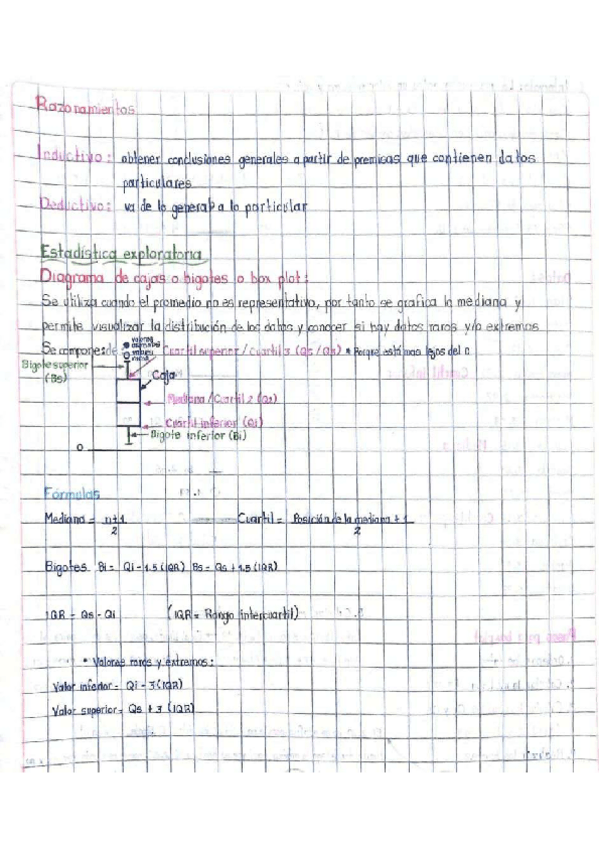 Razonamientos
Inductivo: obtener conclusiones generales a partir de premicas que contienen datos
particulares
Deductivo: va de lo general a lo particular
Estadística exploratoria
Diagrama de cajas o bigotes o box plot:
Se utiliza cuando el promedio no es representativo, por tanto se grafica la mediana y
permite visualizar la distribución de los datos y conocer si hay datos raros y/o extremos
Se compone de:
valores
Cuartil superior / cuartil 3 (Qs / Q3) • Porque está mas lejos del 0
Bigote superior
(Bs)
Caja
Mediana / Cuartil 2 (Q2)
Cuartil inferior (Qi)
Bigote inferior (Bi)
0
Fórmulas
Mediana = n+1
2
Cuartil = Posición de la mediana + 1
2
Bigotes Bi = Qi - 1.5 (IQR) Bs = Qs + 1.5 (IQR)
IQR = Qs - Qi (IQR = Rango intercuartil)
• Valores raros y extremos:
Valor inferior = Qi - 3 (IQR)
Valor superior = Qs + 3 (IQR)